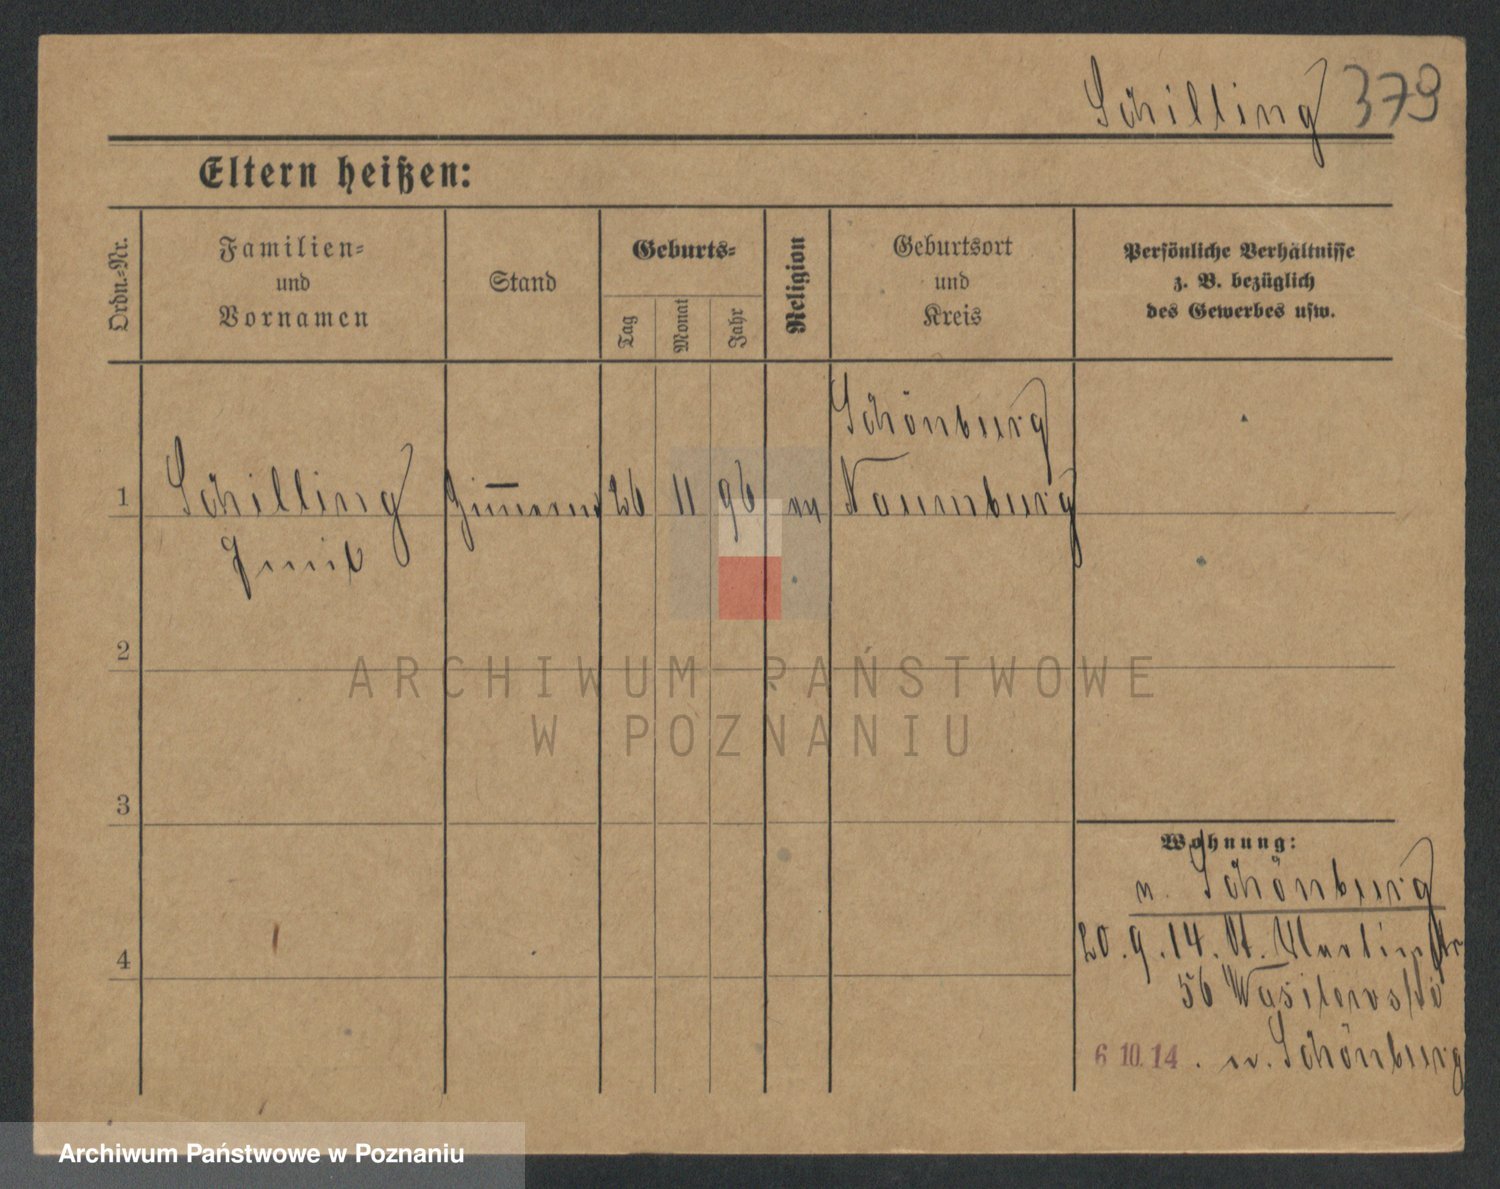 Schilling 379
Eltern heißen:
Ordn.-Nr.
Familien-
und
Vornamen
Stand
Geburts-
Tag
Monat
Jahr
Religion
Geburtsort
und
Kreis
Persönliche Verhältnisse
z. B. bezüglich
des Gewerbes usw.
Schönburg
1 Schilling 26 11 96 Naumburg
2
3
4
Wohnung:
n. Schönburg
20.9.14. St. Martinstr
56
6 10. 14 . n. Schönburg
ARCHIWUM PAŃSTWOWE
W POZNANIU
Archiwum Państwowe w Poznaniu